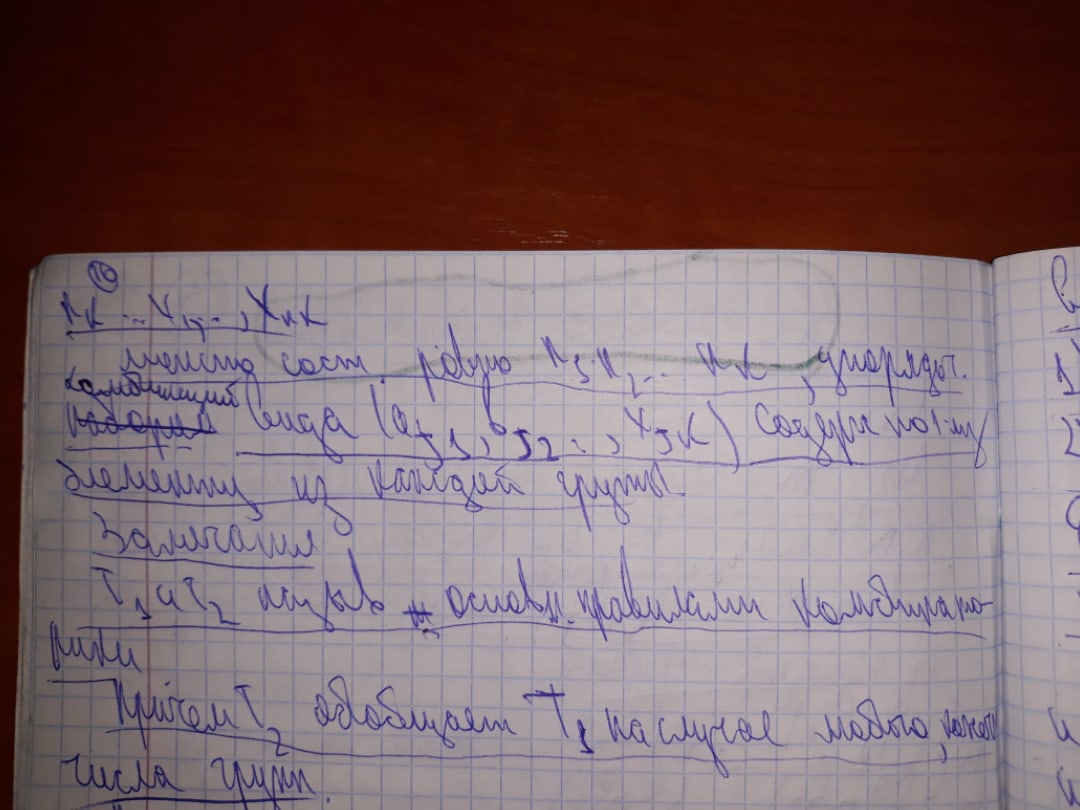 10
n_k ... x_1, ..., x_{n_k k}
можно сост. ровно n_1 n_2 ... n_k, упорядоч.
комбинаций
вида (a_{j1}, b_{j2}, ..., x_{jk}) содерж по 1-му
элементу из каждой группы.
Замечания
T_1 и T_2 назыв основн. правилами комбинато-
рики
Причем T_2 обобщает T_1 на случае любого, конечн
числа групп.